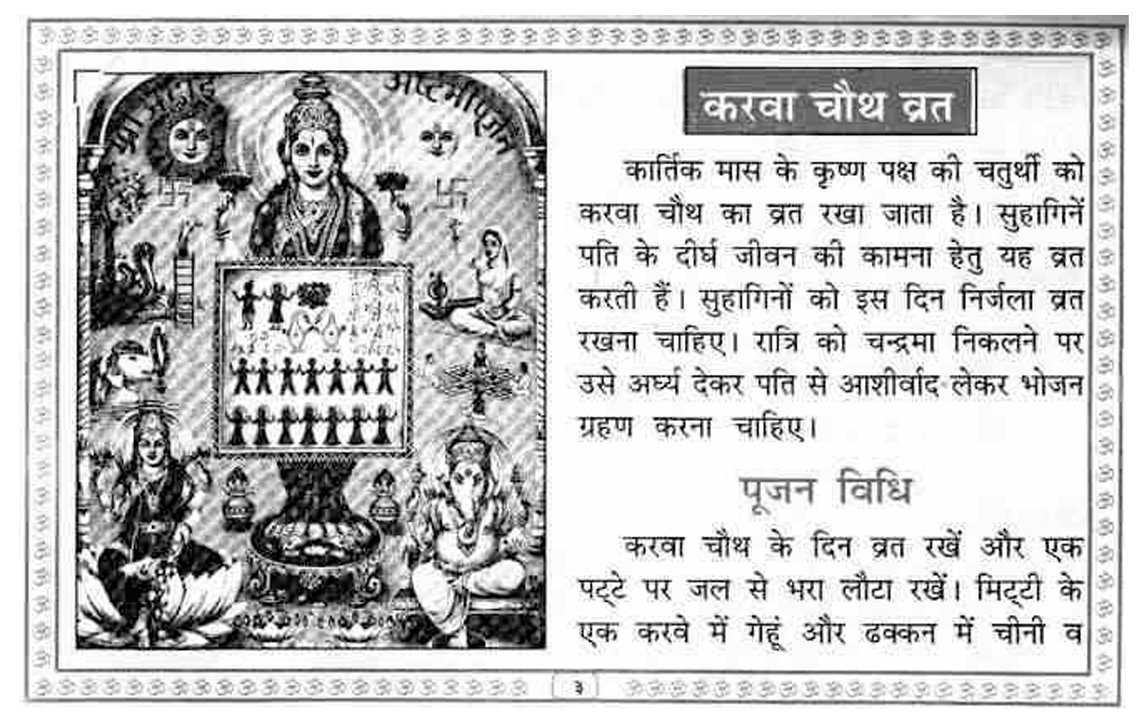 श्री अहोई
अष्टमी पूजन
करवा चौथ व्रत
कार्तिक मास के कृष्ण पक्ष की चतुर्थी को
करवा चौथ का व्रत रखा जाता है। सुहागिनें
पति के दीर्घ जीवन की कामना हेतु यह व्रत
करती हैं। सुहागिनों को इस दिन निर्जला व्रत
रखना चाहिए। रात्रि को चन्द्रमा निकलने पर
उसे अर्घ्य देकर पति से आशीर्वाद लेकर भोजन
ग्रहण करना चाहिए।
पूजन विधि
करवा चौथ के दिन व्रत रखें और एक
पट्टे पर जल से भरा लौटा रखें। मिट्टी के
एक करवे में गेहूं और ढक्कन में चीनी व
३